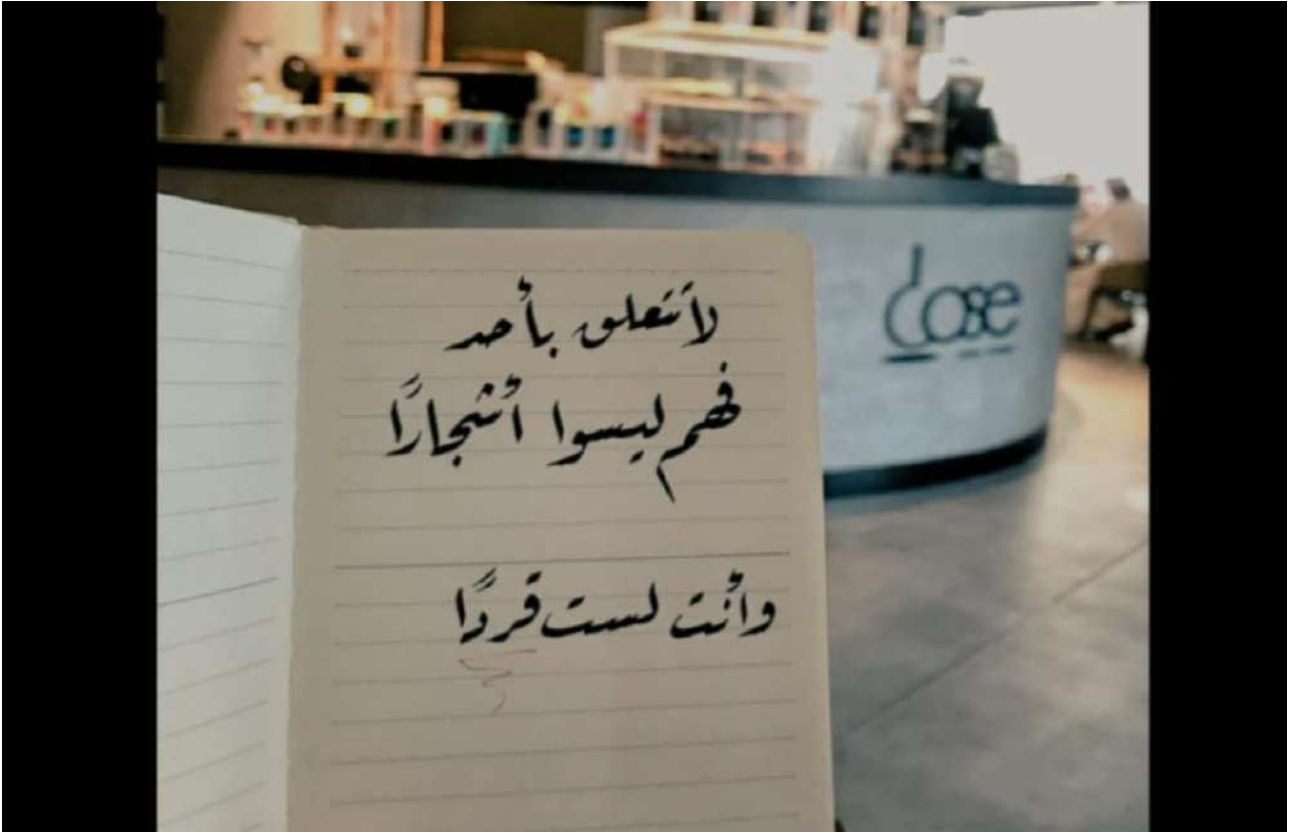 لا تتعلق بأحد
فهم ليسوا أشجارًا
وأنت لست قردًا
dose